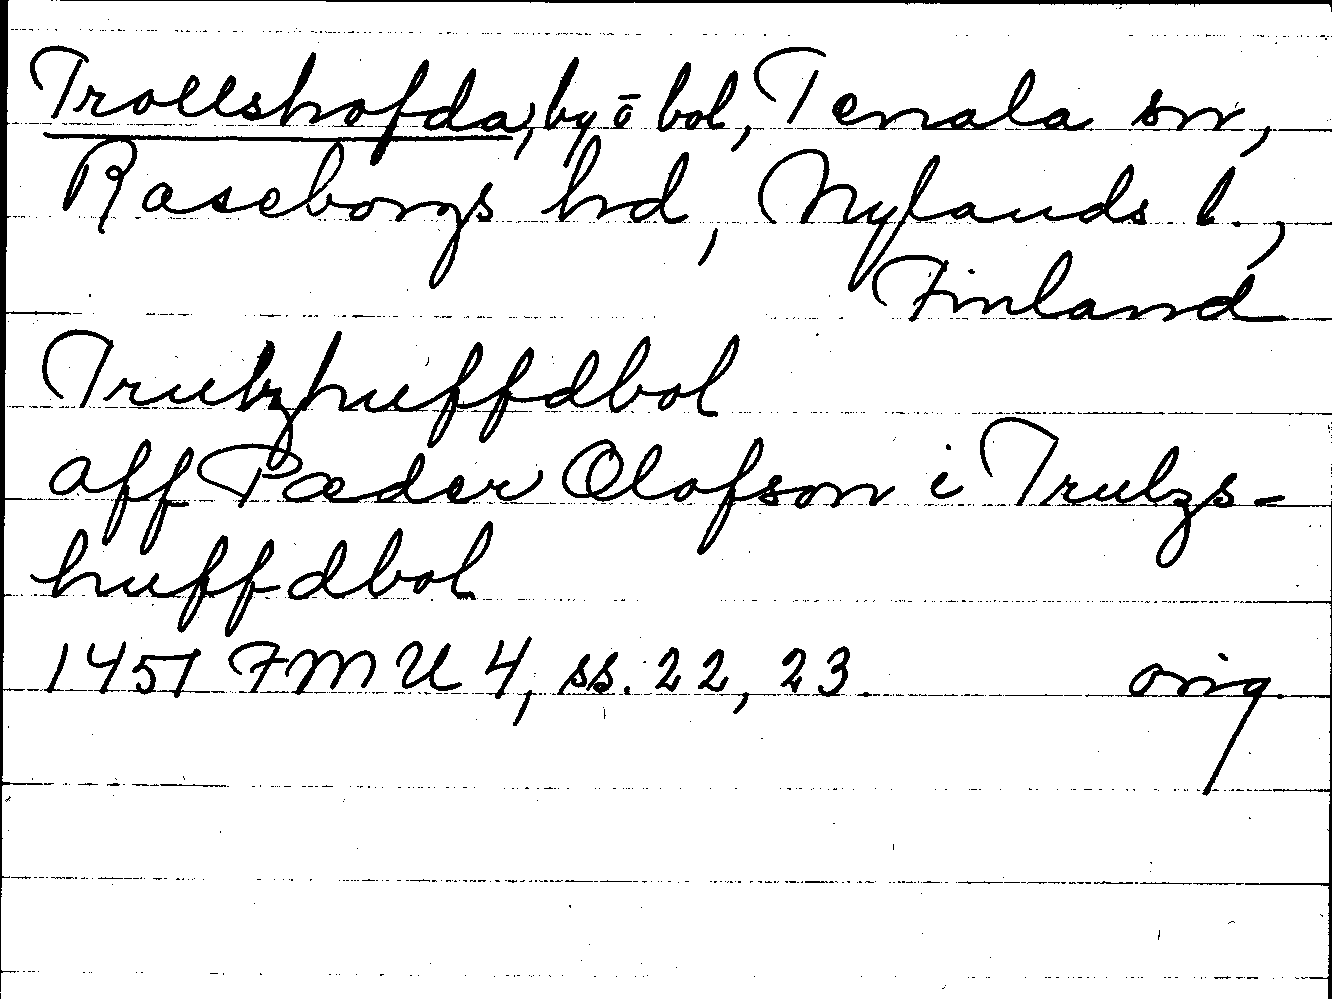 Trollshofda, by ō bol, Tenala sn,
Raseborgs hrd, Nylands l.,
Finland
Trulzhuffdbol
aff Pæder Olofson i Trulzs-
huffdbol
1451 FMU 4, ss. 22, 23. orig.